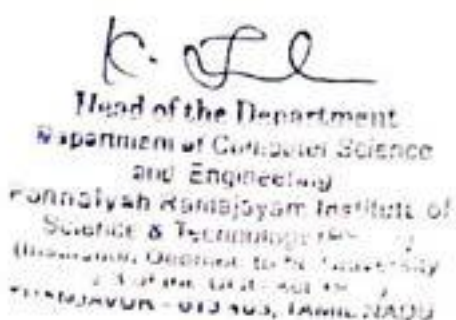 K.
Head of the Department
Department of Computer Science
and Engineering
Ponnaiyah Ramajayam Institute of
Science & Technology
(Institution Deemed to be University
THANJAVUR - 613 403, TAMIL NADU